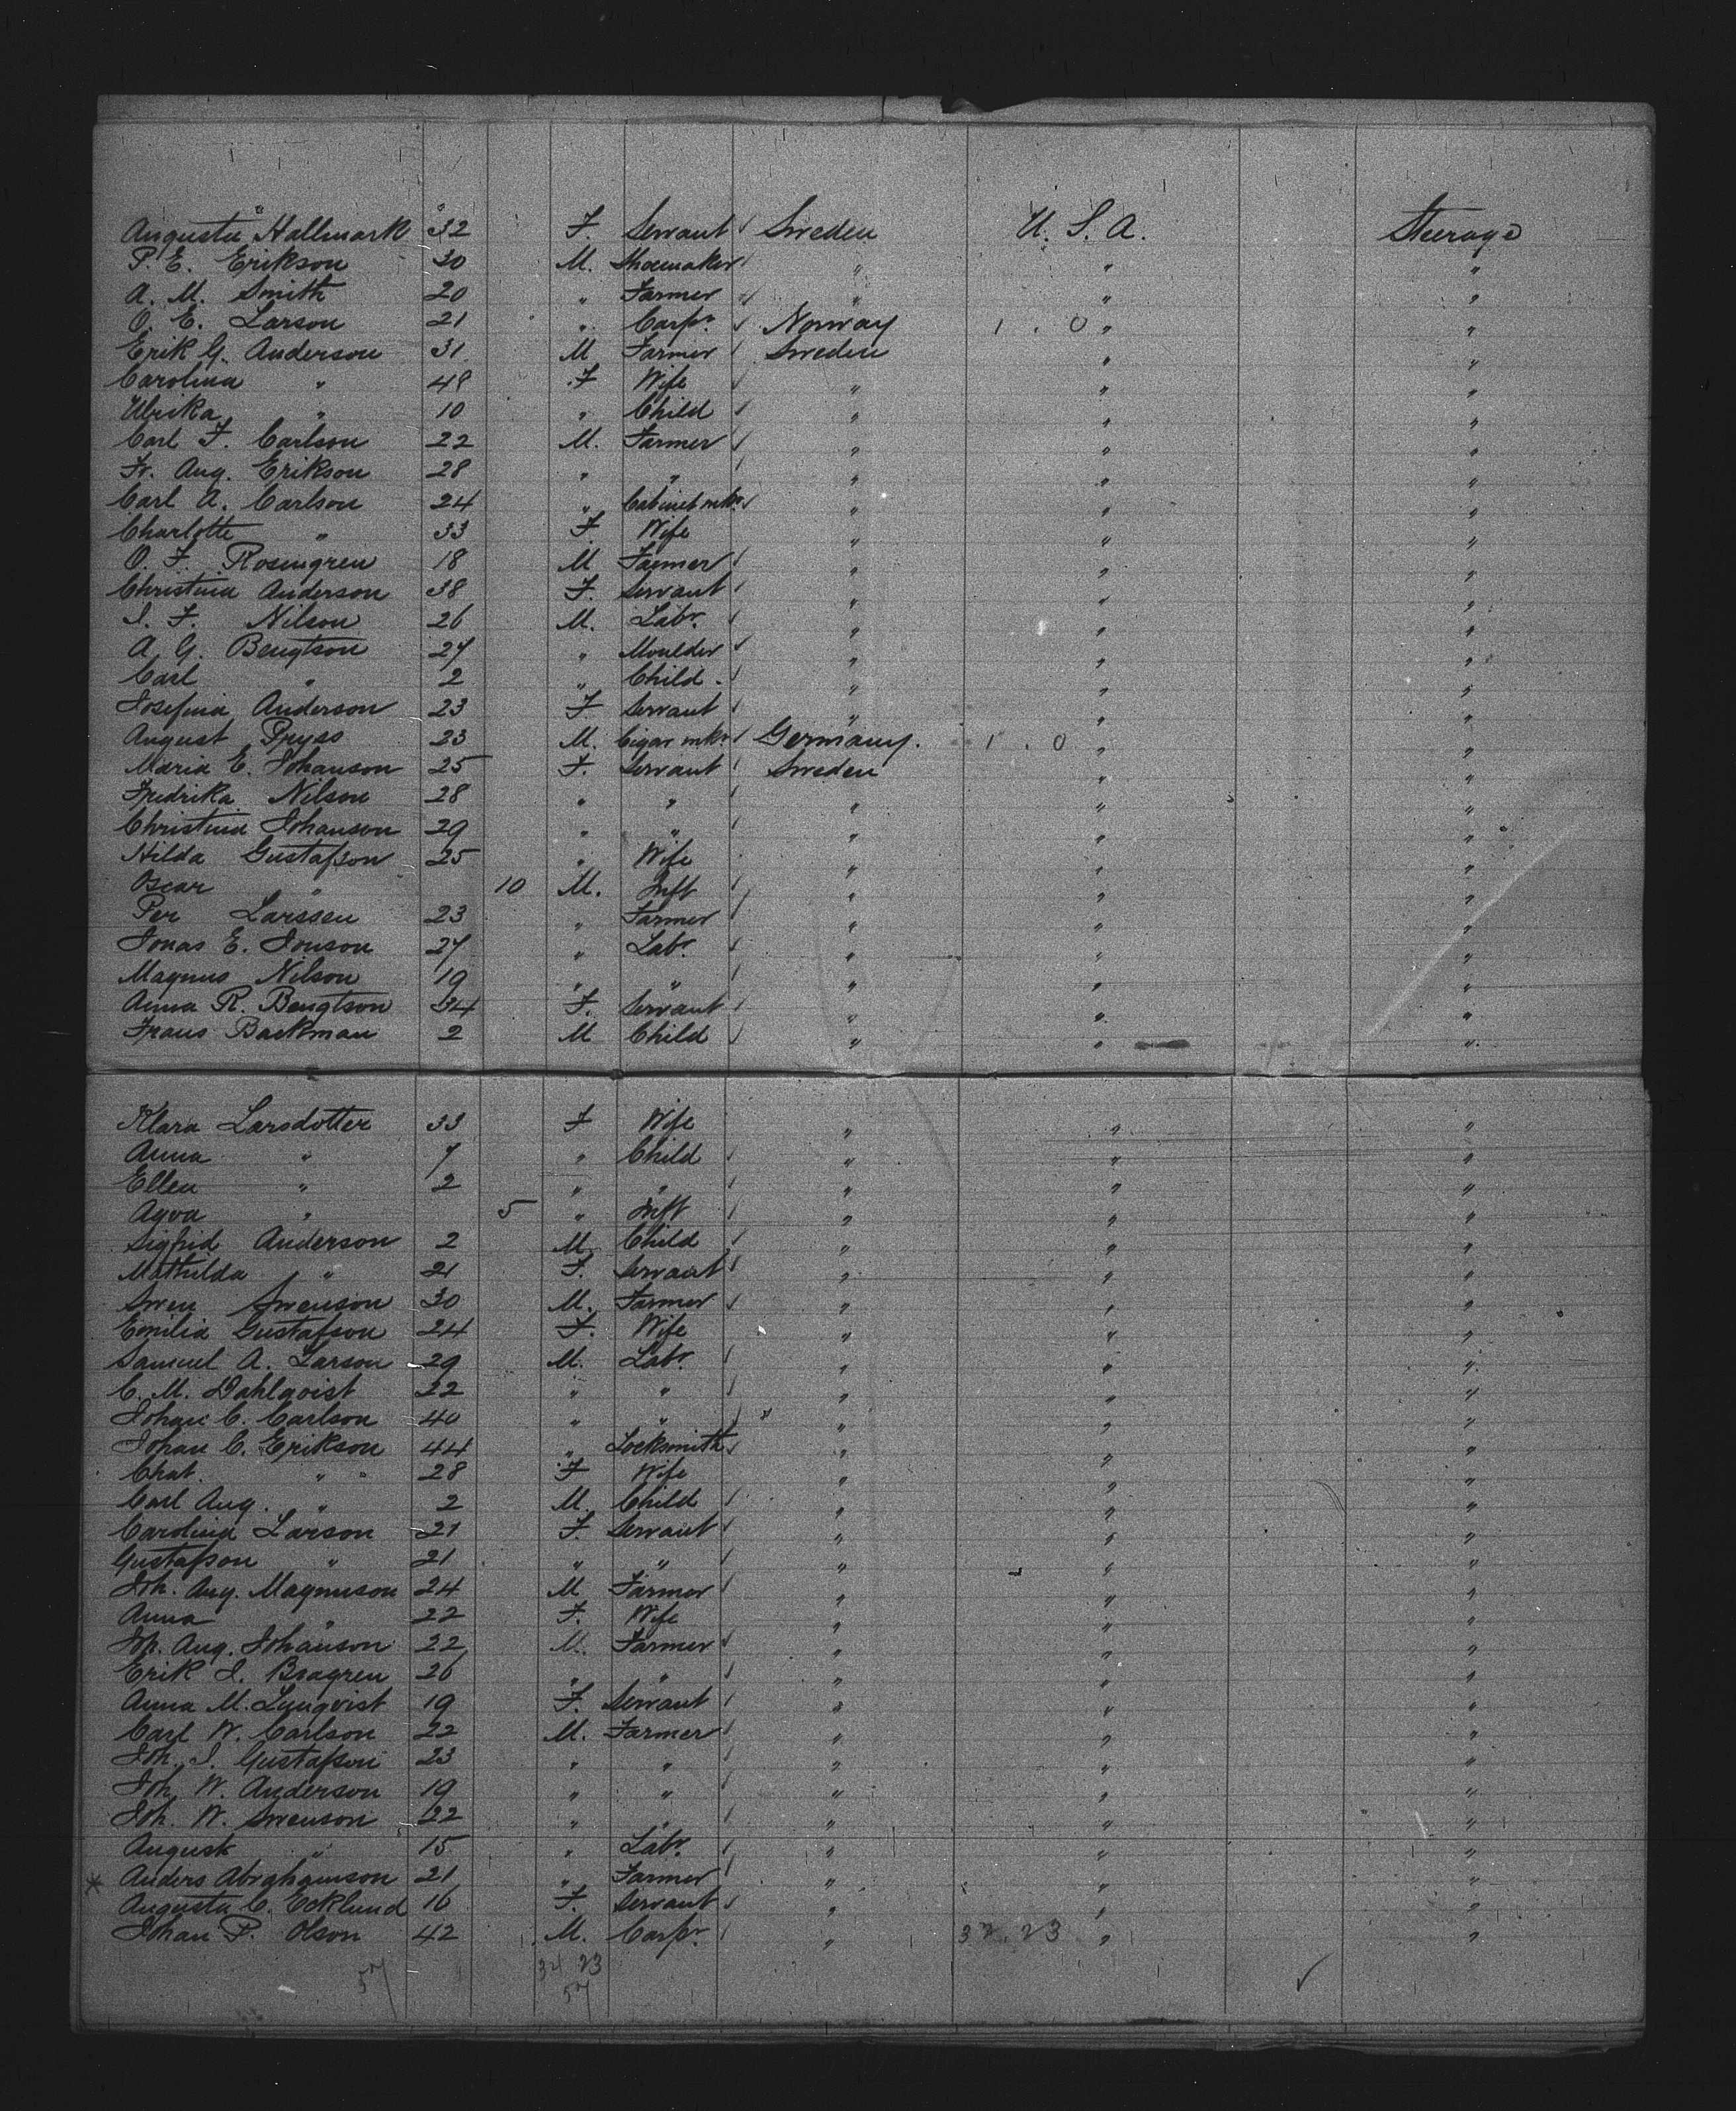 Augusta Hallmark 32 F. Servant Sweden U. S. A. Steerage
P. E. Erikson 30 M. Shoemaker " " "
A. M. Smith 20 " Farmer " " "
O. E. Larson 21 " Carpr. Norway 1 . 0 " "
Erik G. Anderson 31 M Farmer Sweden " "
Carolina " 48 F Wife " " "
Ulrika " 10 " Child " " "
Carl F. Carlson 22 M. Farmer " " "
Fr. Aug. Erikson 28 " " " " "
Carl A. Carlson 24 " Cabinet mkr. " " "
Charlotte " 33 F. Wife " " "
O. F. Rosengren 18 M Farmer " " "
Christina Anderson 38 F. Servant " " "
I. F. Nilson 26 M. Labr. " " "
A. G. Bengtson 27 " Moulder " " "
Carl " 2 " Child " " "
Josefina Anderson 23 F Servant " " "
August Pryss 23 M. Cigar mkr. Germany. 1 . 0 " "
Maria E. Johanson 25 F. Servant Sweden " "
Fredrika Nilson 28 " " " " "
Christina Johanson 29 " " " " "
Hilda Gustafson 25 " Wife " " "
Oscar " 10 M. Inft " " "
Per Larssen 23 " Farmer " " "
Jonas E. Jonson 27 " Labr. " " "
Magnus Nilson 19 " " " " "
Anna R. Bengtson 34 F. Servant " " "
Frans Backman 2 M Child " " "
Klara Larsdotter 33 F Wife " " "
Anna " 7 " Child " " "
Ellen " 2 " " " " "
Agva " 5 " Inft " " "
Sigfrid Anderson 2 M. Child " " "
Mathilda " 21 F. Servant " " "
Swen Swenson 30 M. Farmer " " "
Emilia Gustafson 24 F. Wife " " "
Samuel A. Larson 29 M. Labr. " " "
C. M. Dahlqvist 22 " " " " "
Johan C. Carlson 40 " " " " "
Johan C. Erikson 44 " Locksmith " " "
Chat. " " 28 F Wife " " "
Carl Aug. " 2 M. Child " " "
Carolina Larson 21 F. Servant " " "
Gustafson " 21 " " " " "
Joh. Aug. Magnuson 24 M Farmer " " "
Anna " 22 F. Wife " " "
Joh. Aug. Johanson 22 M. Farmer " " "
Erik J. Bragren 26 " " " " "
Anna M. Lynqvist 19 F. Servant " " "
Carl W. Carlson 22 M. Farmer " " "
Joh. J. Gustafson 23 " " " " "
Joh. W. Anderson 19 " " " " "
Joh. W. Swenson 22 " " " " "
August " 15 " Labr. " " "
Anders Abrahamson 21 " Farmer " " "
Augusta C. Ecklund 16 F. Servant " " "
Johan P. Olson 42 M. Carpr. " 32 . 23 " "
57 34 23
57